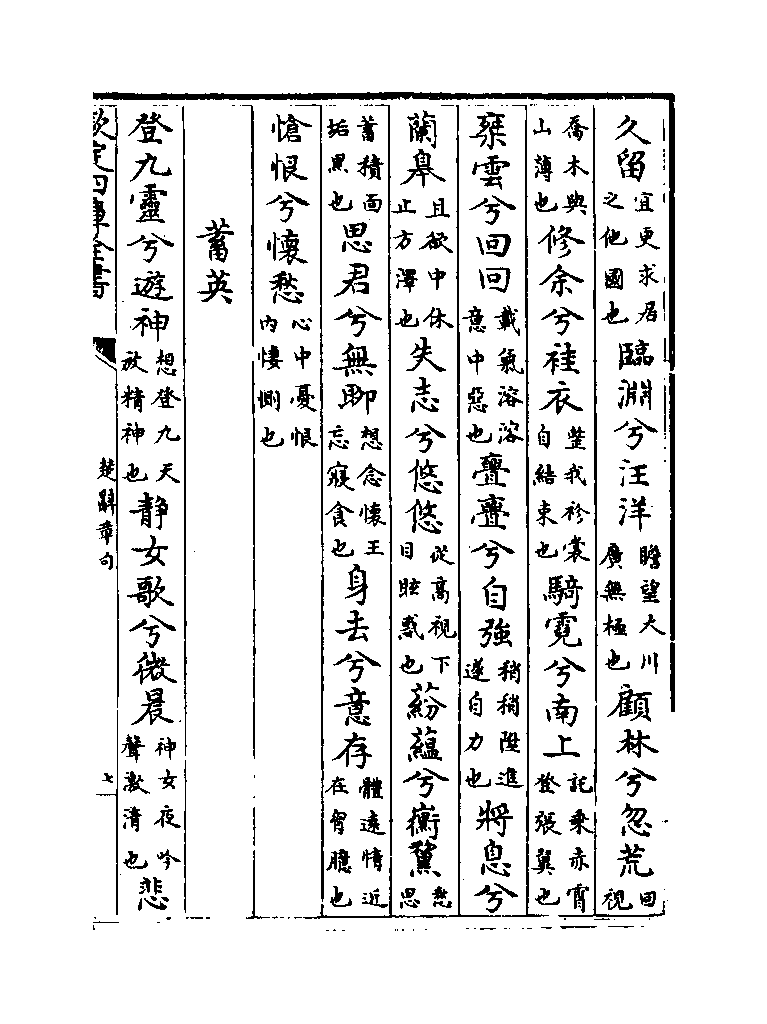 久留宜更求居之他國也臨淵兮汪洋瞻望大川廣無極也顧林兮忽荒回視
喬木與山薄也修余兮袿衣整我衿裳自結束也騎霓兮南上託乘赤霄登張翼也
椉雲兮回回載氣溶溶意中惡也亹亹兮自強稍稍陞進遂自力也將息兮
蘭皋且欲中休止方澤也失志兮悠悠從高視下目眩惑也蒶蘊兮黴黧愁思
蓄積面垢黒也思君兮無聊想念懷王忘寢食也身去兮意存體遠情近在胷臆也
愴恨兮懷愁心中憂恨内悽惻也
蓄英
登九靈兮遊神想登九天放精神也静女歌兮微晨神女夜吟聲激清也悲
欽定四庫全書
楚辭章句
七